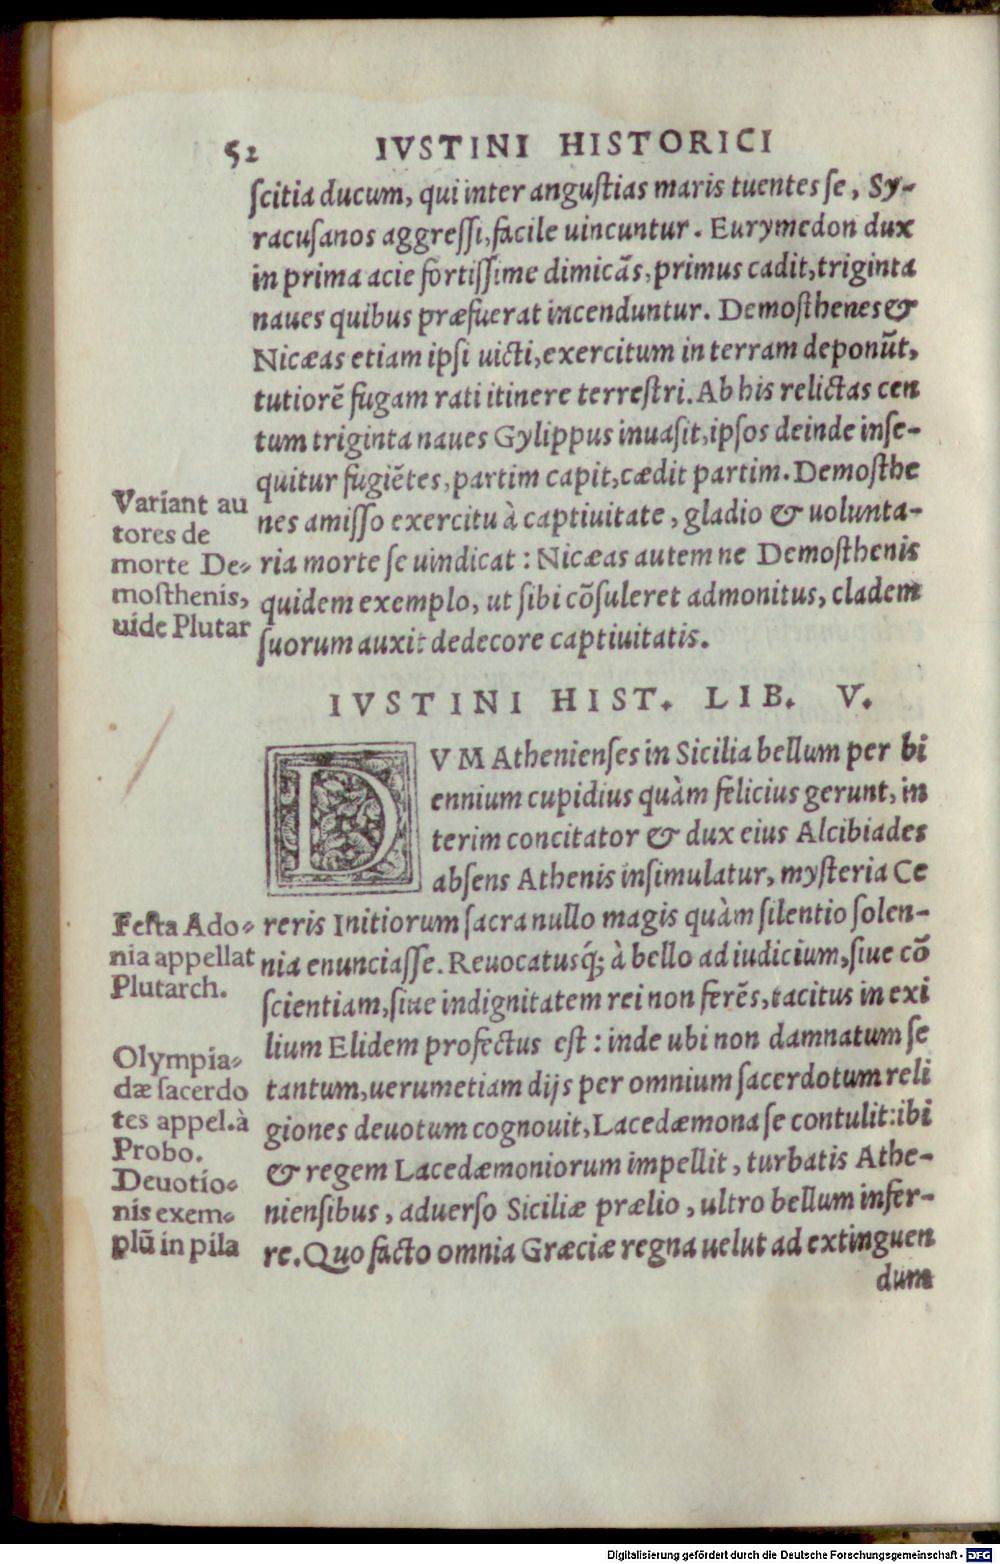 52 IVSTINI HISTORICI
ſcitia ducum, qui inter anguſtias maris tuentes ſe, Sy-
racuſanos aggreſſi, facile uincuntur. Eurymedon dux
in prima acie fortiſſime dimicãs, primus cadit, triginta
naues quibus præfuerat incenduntur. Demoſthenes &
Nicæas etiam ipſi uicti, exercitum in terram deponũt,
tutiorẽ fugam rati itinere terreſtri. Ab his relictas cen
tum triginta naues Gylippus inuaſit, ipſos deinde inſe-
quitur fugiẽtes, partim capit, cædit partim. Demoſthe
nes amiſſo exercitu à captiuitate, gladio & uolunta-
ria morte ſe uindicat: Nicæas autem ne Demoſthenis
quidem exemplo, ut ſibi cõſuleret admonitus, cladem
ſuorum auxit dedecore captiuitatis.
Variant au
tores de
morte De-
moſthenis,
uide Plutar
IVSTINI HIST. LIB. V.
DVM Athenienſes in Sicilia bellum per bi
ennium cupidius quàm felicius gerunt, in
terim concitator & dux eius Alcibiades
abſens Athenis inſimulatur, myſteria Ce
reris Initiorum ſacra nullo magis quàm ſilentio ſolen-
nia enunciaſſe. Reuocatusq́; à bello ad iudicium, ſiue cõ
ſcientiam, ſiue indignitatem rei non ferẽs, tacitus in exi
lium Elidem profectus eſt: inde ubi non damnatum ſe
tantum, uerumetiam dijs per omnium ſacerdotum reli
giones deuotum cognouit, Lacedæmona ſe contulit: ibi
& regem Lacedæmoniorum impellit, turbatis Athe-
nienſibus, aduerſo Siciliæ prælio, ultro bellum infer-
re. Quo facto omnia Græciæ regna uelut ad extinguen
dum
Feſta Ado-
nia appellat
Plutarch.
Olympia-
dæ ſacerdo
tes appel. à
Probo.
Deuotio-
nis exem-
plũ in pila
Digitalisierung gefördert durch die Deutsche Forschungsgemeinschaft - DFG